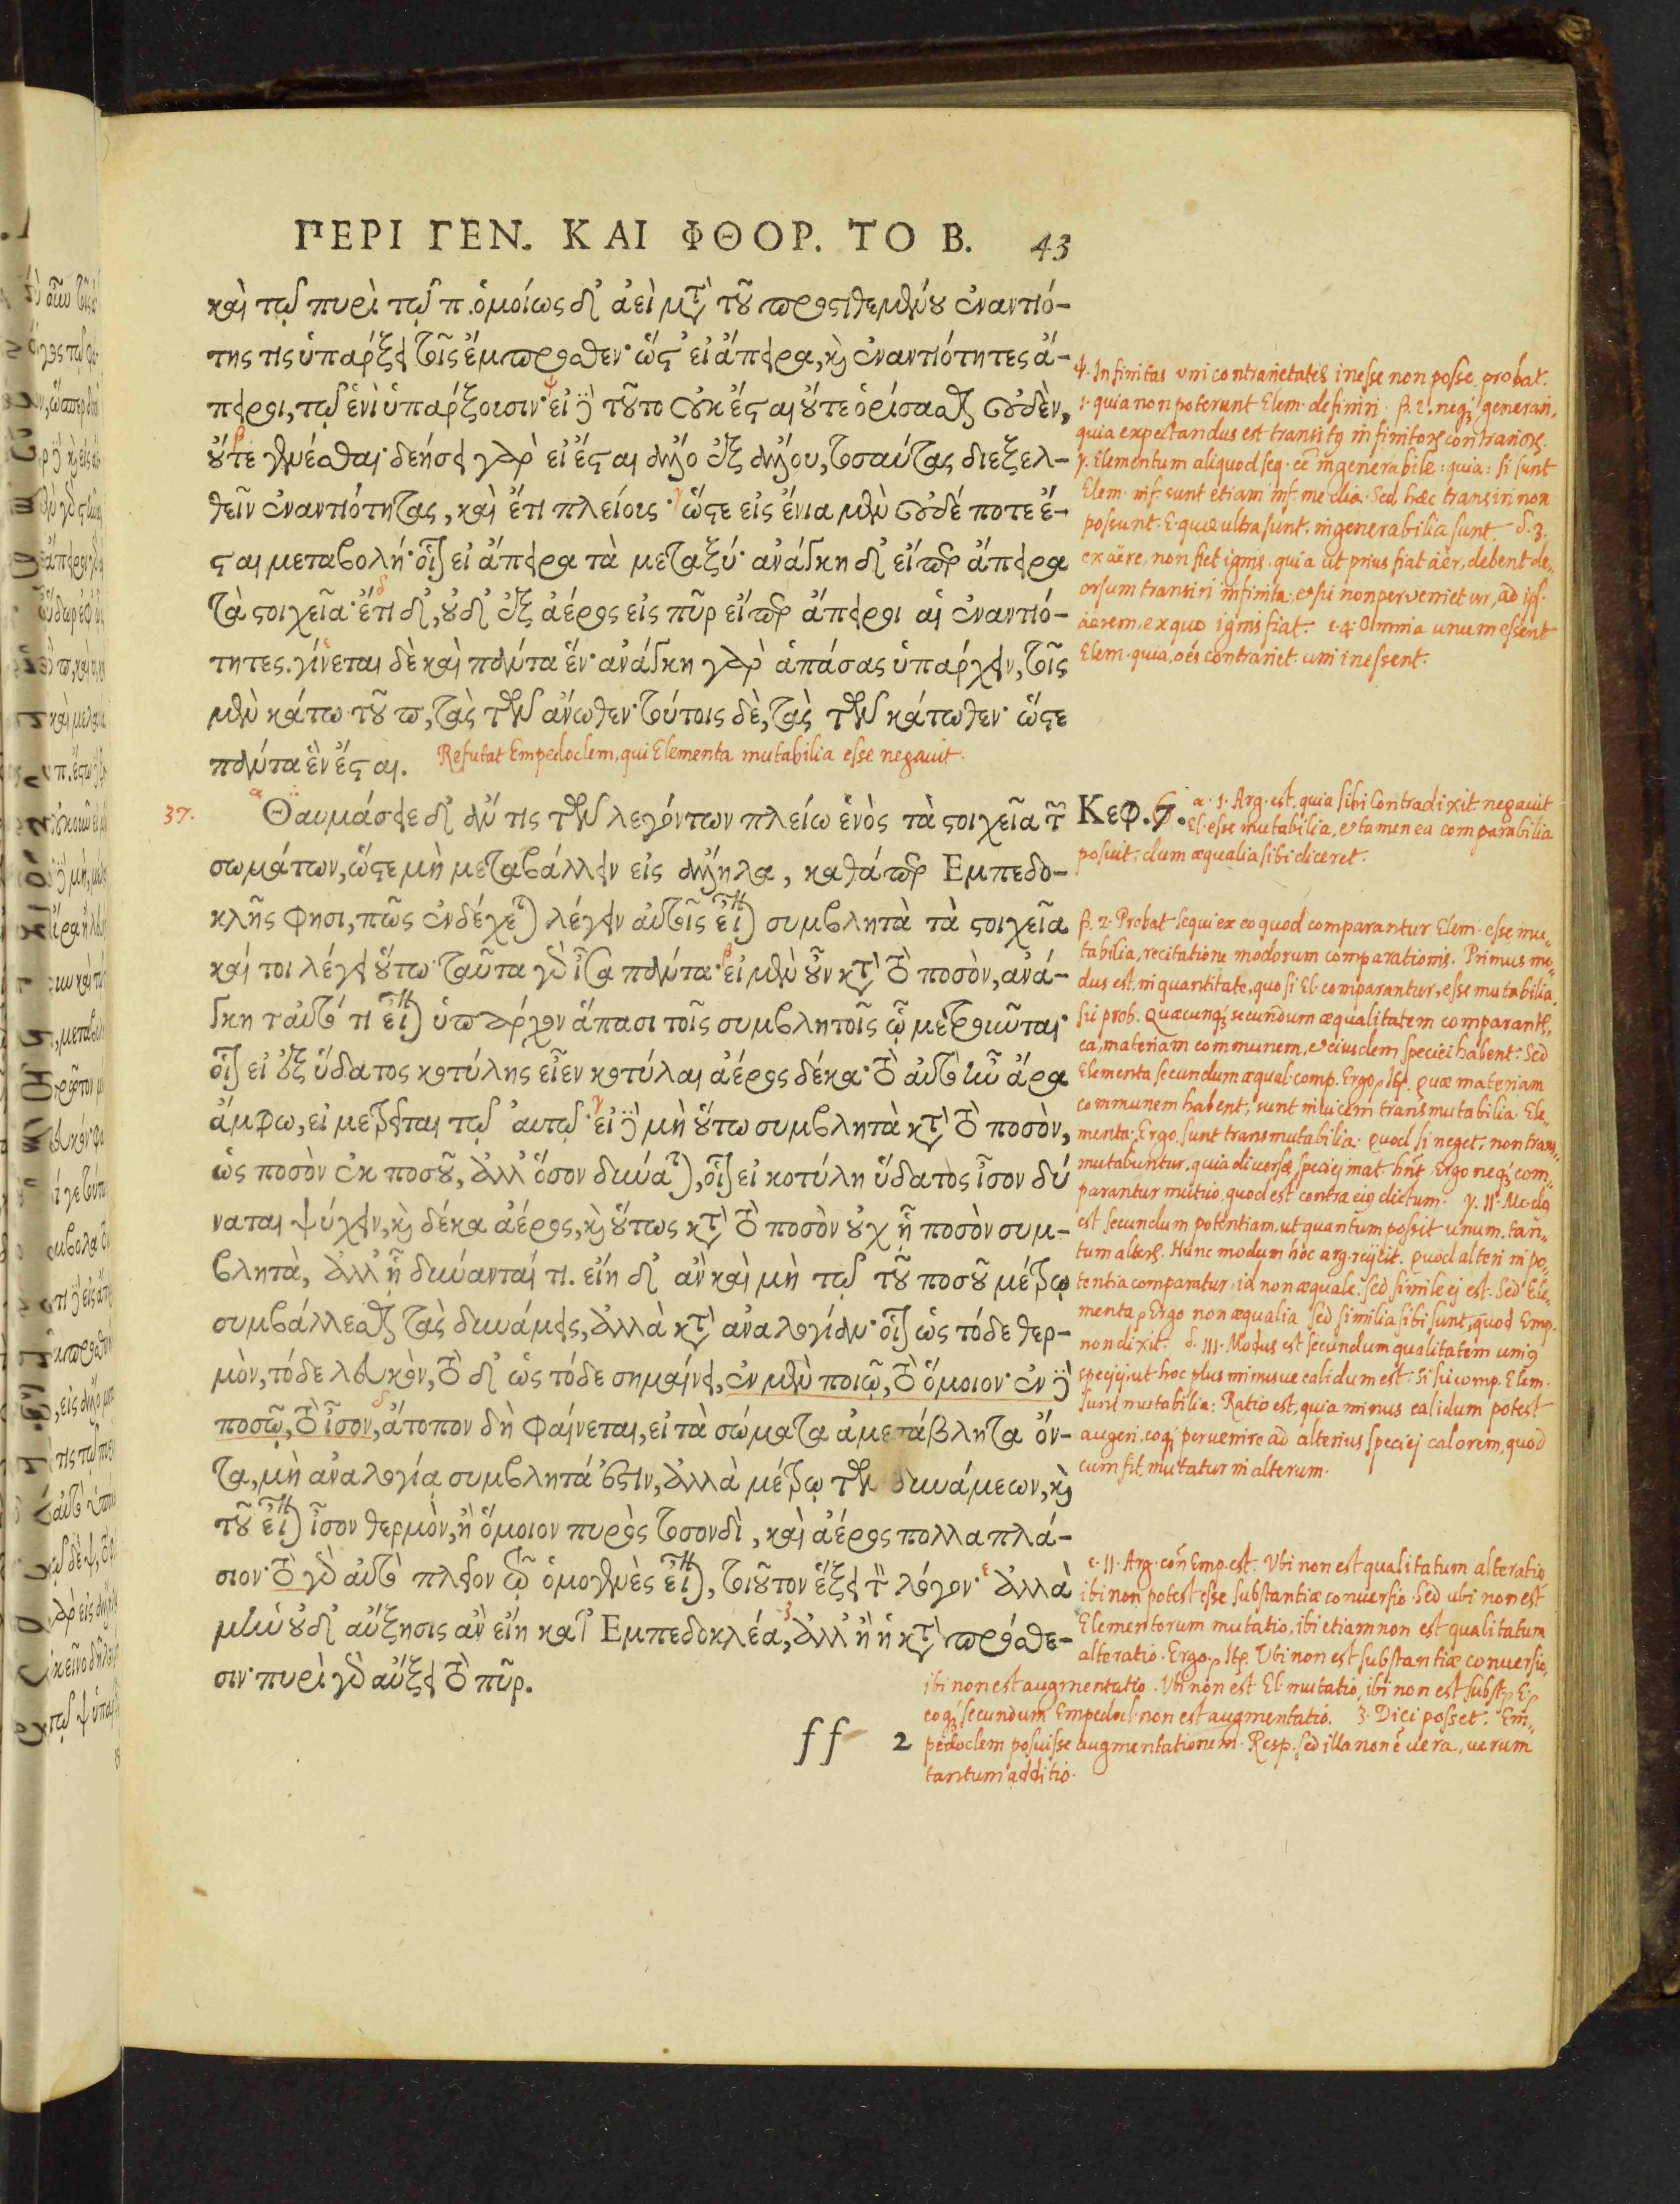 ΠΕΡΙ ΓΕΝ. ΚΑΙ ΦΘΟΡ. ΤΟ Β. 43
καὶ τῷ πυρὶ τῷ π. ὁμοίως δ' ἀεὶ μετὰ τοῦ προστιθεμένου ἐναντιό-
της τις ὑπάρξει τοῖς ἔμπροσθεν· ὥστ' εἰ ἄπειρα, καὶ ἐναντιότητες ἄ-
πειροι, τῷ ἑνὶ ὑπάρξουσιν· εἰ δὲ τοῦτο οὐκ ἔσται οὔτε ὁρίσασθαι οὐδὲν,
οὔτε γενέσθαι· δεήσει γὰρ εἰ ἔσται ἄλλο ἐξ ἄλλου, τοσαύτας διεξελ-
θεῖν ἐναντιότητας, καὶ ἔτι πλείους· ὥστε εἰς ἔνια μὲν οὐδέ ποτε ἔ-
σται μεταβολή· οἷον εἰ ἄπειρα τὰ μεταξύ· ἀνάγκη δ' εἴπερ ἄπειρα
τὰ στοιχεῖα· ἔτι δ', οὐδ' ἐξ ἀέρος εἰς πῦρ εἴπερ ἄπειροι αἱ ἐναντιό-
τητες. γίνεται δὲ καὶ πάντα ἕν· ἀνάγκη γὰρ ἁπάσας ὑπάρχειν, τοῖς
μὲν κάτω τοῦ π, τὰς τῶν ἄνωθεν· τούτοις δὲ, τὰς τῶν κάτωθεν· ὥστε
πάντα ἓν ἔσται. Refutat Empedoclem, qui Elementa mutabilia esse negauit.
37. Θαυμάσειε δ' ἄν τις τῶν λεγόντων πλείω ἑνὸς τὰ στοιχεῖα τῶν Κεφ. 6.
σωμάτων, ὥστε μὴ μεταβάλλειν εἰς ἄλληλα, καθάπερ Εμπεδο-
κλῆς φησι, πῶς ἐνδέχεται λέγειν αὐτοῖς εἶναι συμβλητὰ τὰ στοιχεῖα
καί τοι λέγει οὕτω· ταῦτα γὰρ ἶσα πάντα· εἰ μὲν οὖν κατὰ τὸ ποσὸν, ἀνά-
γκη ταὐτό τι εἶναι ὑπάρχον ἅπασι τοῖς συμβλητοῖς ᾧ μετροῦνται·
οἷον εἰ ἐξ ὕδατος κοτύλης εἶεν κοτύλαι ἀέρος δέκα· τὸ αὐτὸ ἦν ἄρα
ἄμφω, εἰ μετρεῖται τῷ αυτῷ· εἰ δὲ μὴ οὕτω συμβλητὰ κατὰ τὸ ποσὸν,
ὡς ποσὸν ἐκ ποσοῦ, ἀλλ' ὅσον δύναται, οἷον εἰ κοτύλη ὕδατος ἶσον δύ
ναται ψύχειν, καὶ δέκα ἀέρος, καὶ οὕτως κατὰ τὸ ποσὸν οὐχ ᾗ ποσὸν συμ-
βλητὰ, ἀλλ' ᾗ δύνανταί τι. εἴη δ' ἂν καὶ μὴ τῷ τοῦ ποσοῦ μέτρῳ
συμβάλλεσθαι τὰς δυνάμεις, ἀλλὰ κατὰ ἀναλογίαν· οἷον ὡς τόδε θερ-
μὸν, τόδε λευκὸν, τὸ δ' ὡς τόδε σημαίνει, ἐν μὲν ποιῷ, τὸ ὅμοιον· ἐν δὲ
ποσῷ, τὸ ἶσον, ἄτοπον δὴ φαίνεται, εἰ τὰ σώματα ἀμετάβλητα ὄν-
τα, μὴ ἀναλογίᾳ συμβλητά ἐστιν, ἀλλὰ μέτρῳ τῶν δυνάμεων, καὶ
τοῦ εἶναι ἶσον θερμὸν, ἢ ὅμοιον πυρὸς τοσονδὶ, καὶ ἀέρος πολλαπλά-
σιον· τὸ γὰρ αὐτὸ πλεῖον τῷ ὁμογενὲς εἶναι, τοιοῦτον ἕξει τὸν λόγον· ἀλλὰ
μὴν οὐδ' αὔξησις ἂν εἴη κατ' Εμπεδοκλέα, ἀλλ' ἢ ἡ κατὰ πρόσθε-
σιν· πυρὶ γὰρ αὔξει τὸ πῦρ.
ff 2
ψ. Infinitas uni contrarietates inesse non posse, probat.
1. quia non poterunt Elem. definiri. β. 2. neq; generari,
quia expectandus est transitus infinitorum contrariorum.
γ. Elementum aliquod seq. eē ingenerabile: quia: si sunt
Elem. inf. sunt etiam inf. media. Sed hæc transiri non
possunt. E. quæ ultra sunt, ingenerabilia sunt. δ. 3.
ex aëre, non fiet ignis, quia ut prius fiat aër, debent de„
orsum transiri infinita: et sic non pervenietur, ad ips.
aërem, ex quo ignis fiat. ε. 4. Omnia unum essent
Elem. quia, oēs contrariet. uni inessent.
α. 1. Arg. est, quia sibi Contradixit negauit
El. esse mutabilia, et tamen ea comparabilia
posuit: dum æqualia sibi diceret.
β. 2. Probat sequi ex eo quod comparantur Elem. esse mu„
tabilia, recitatione modorum comparationis. Primus mo„
dus est, in quantitate, quo si El. comparantur, esse mutabilia,
sic prob. Quæcunq; secundum æqualitatem comparantur,
ea, materiam communem, et eiusdem speciei habent: Sed
Elementa secundum æqual. comp. Ergo. Itp. quæ materiam
communem habent, sunt inuicem transmutabilia. Ele„
menta. Ergo. sunt transmutabilia. quod si neget, non trans„
mutabuntur, quia diuersæ speciei mat. hñt. Ergo neq; com„
parantur mutuo, quod est contra eius dictum. γ. II. Modus
est secundum potentiam, ut quantum possit unum, tan„
tum alterum. Hunc modum hoc arg. reijcit. quod alteri in po„
tentia comparatur, id non æquale, sed simile ei est. Sed Ele„
menta, Ergo non æqualia sed similia sibi sunt, quod Emp.
non dixit. δ. III. Modus est secundum qualitatem unius
speciei, ut hoc plus minusue calidum est. Si sic comp. Elem.
sunt mutabilia: Ratio est, quia minus calidum potest
augeri, eoq; peruenire ad alterius speciei calorem, quod
cum fit, mutatur in alterum.
ε. II. Arg. coñ Emp. est. Ubi non est qualitatum alteratio
ibi non potest esse substantiæ conuersio. Sed ubi non est
Elementorum mutatio, ibi etiam non est qualitatum
alteratio. Ergo. Itp. Ubi non est substantiæ conuersio,
ibi non est augmentatio. Ubi non est El. mutatio, ibi non est subst. E.
eoq; secundum Empedocl. non est augmentatio. ζ. Dici posset: Em„
pedoclem posuisse augmentationem. Resp. sed illa non ē uera, uerum
tantum additio.